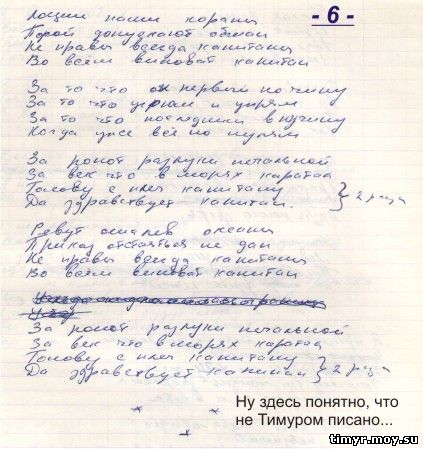 - 6 -
Лоции наши кораны
Порой допускают обман
Не правы всегда капитаны
Во всём виноват капитан
За то что он первый по чину
За то что угрюм и упрям
За то что последним в пучину
Когда уже всё по нулям
За ропот разлуки печальной
За век что в морях каратал
Голову с плеч капитану
Да здравствует капитан. } 2 раза
Ревут ошалев океаны
Приказ отстаяться не дан
Не правы всегда капитаны
Во всём виноват капитан
За ропот разлуки печальной
За век что в морях каратал
Голову с плеч капитану
Да здравствует капитан } 2 раза
* * *
Ну здесь понятно, что
не Тимуром писано...
timyr.moy.su